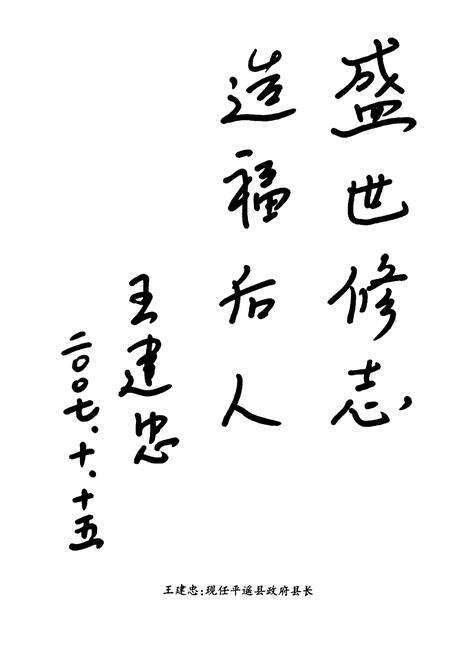 盛世修志
造福后人
王建忠
二〇〇七.十.十五
王建忠:现任平遥县政府县长